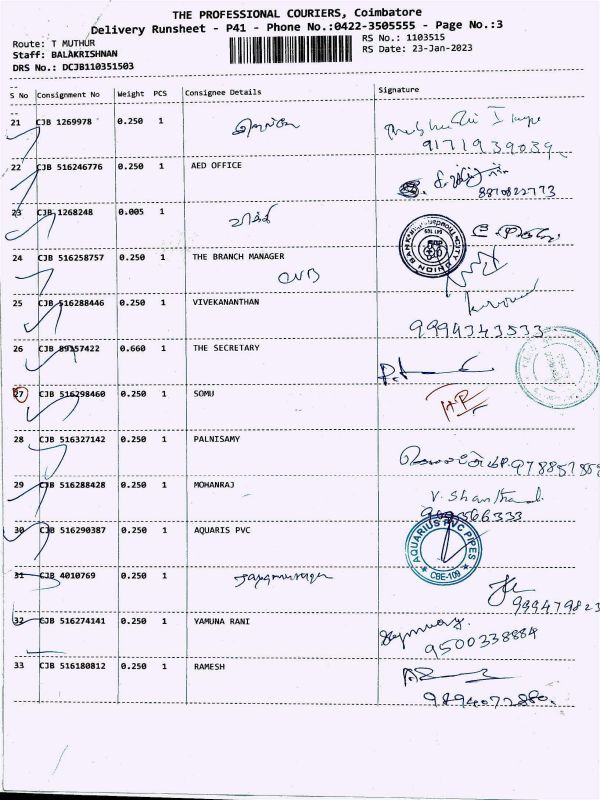 THE PROFESSIONAL COURIERS, Coimbatore
Delivery Runsheet - P41 - Phone No.:0422-3505555 - Page No.:3
Route: T MUTHUR
RS No.: 1103515
Staff: BALAKRISHNAN
RS Date: 23-Jan-2023
DRS No.: DCJB110351503
S No Consignment No Weight PCS Consignee Details Signature
21 CJB 1269978 0.250 1
9171939039
22 CJB 516246776 0.250 1 AED OFFICE
8870822773
23 CJB 1268248 0.005 1
24 CJB 516258757 0.250 1 THE BRANCH MANAGER
CUB
25 CJB 516288446 0.250 1 VIVEKANANTHAN
9994343533
26 CJB 89157422 0.660 1 THE SECRETARY
27 CJB 516298460 0.250 1 SOMU
28 CJB 516327142 0.250 1 PALNISAMY
29 CJB 516288428 0.250 1 MOHANRAJ
V. Shanthand
30 CJB 516290387 0.250 1 AQUARIS PVC
AQUARIUS PVC PIPES
CBE-109
31 CJB 4010769 0.250 1
32 CJB 516274141 0.250 1 YAMUNA RANI
9500338884
33 CJB 516180812 0.250 1 RAMESH
9894072880.